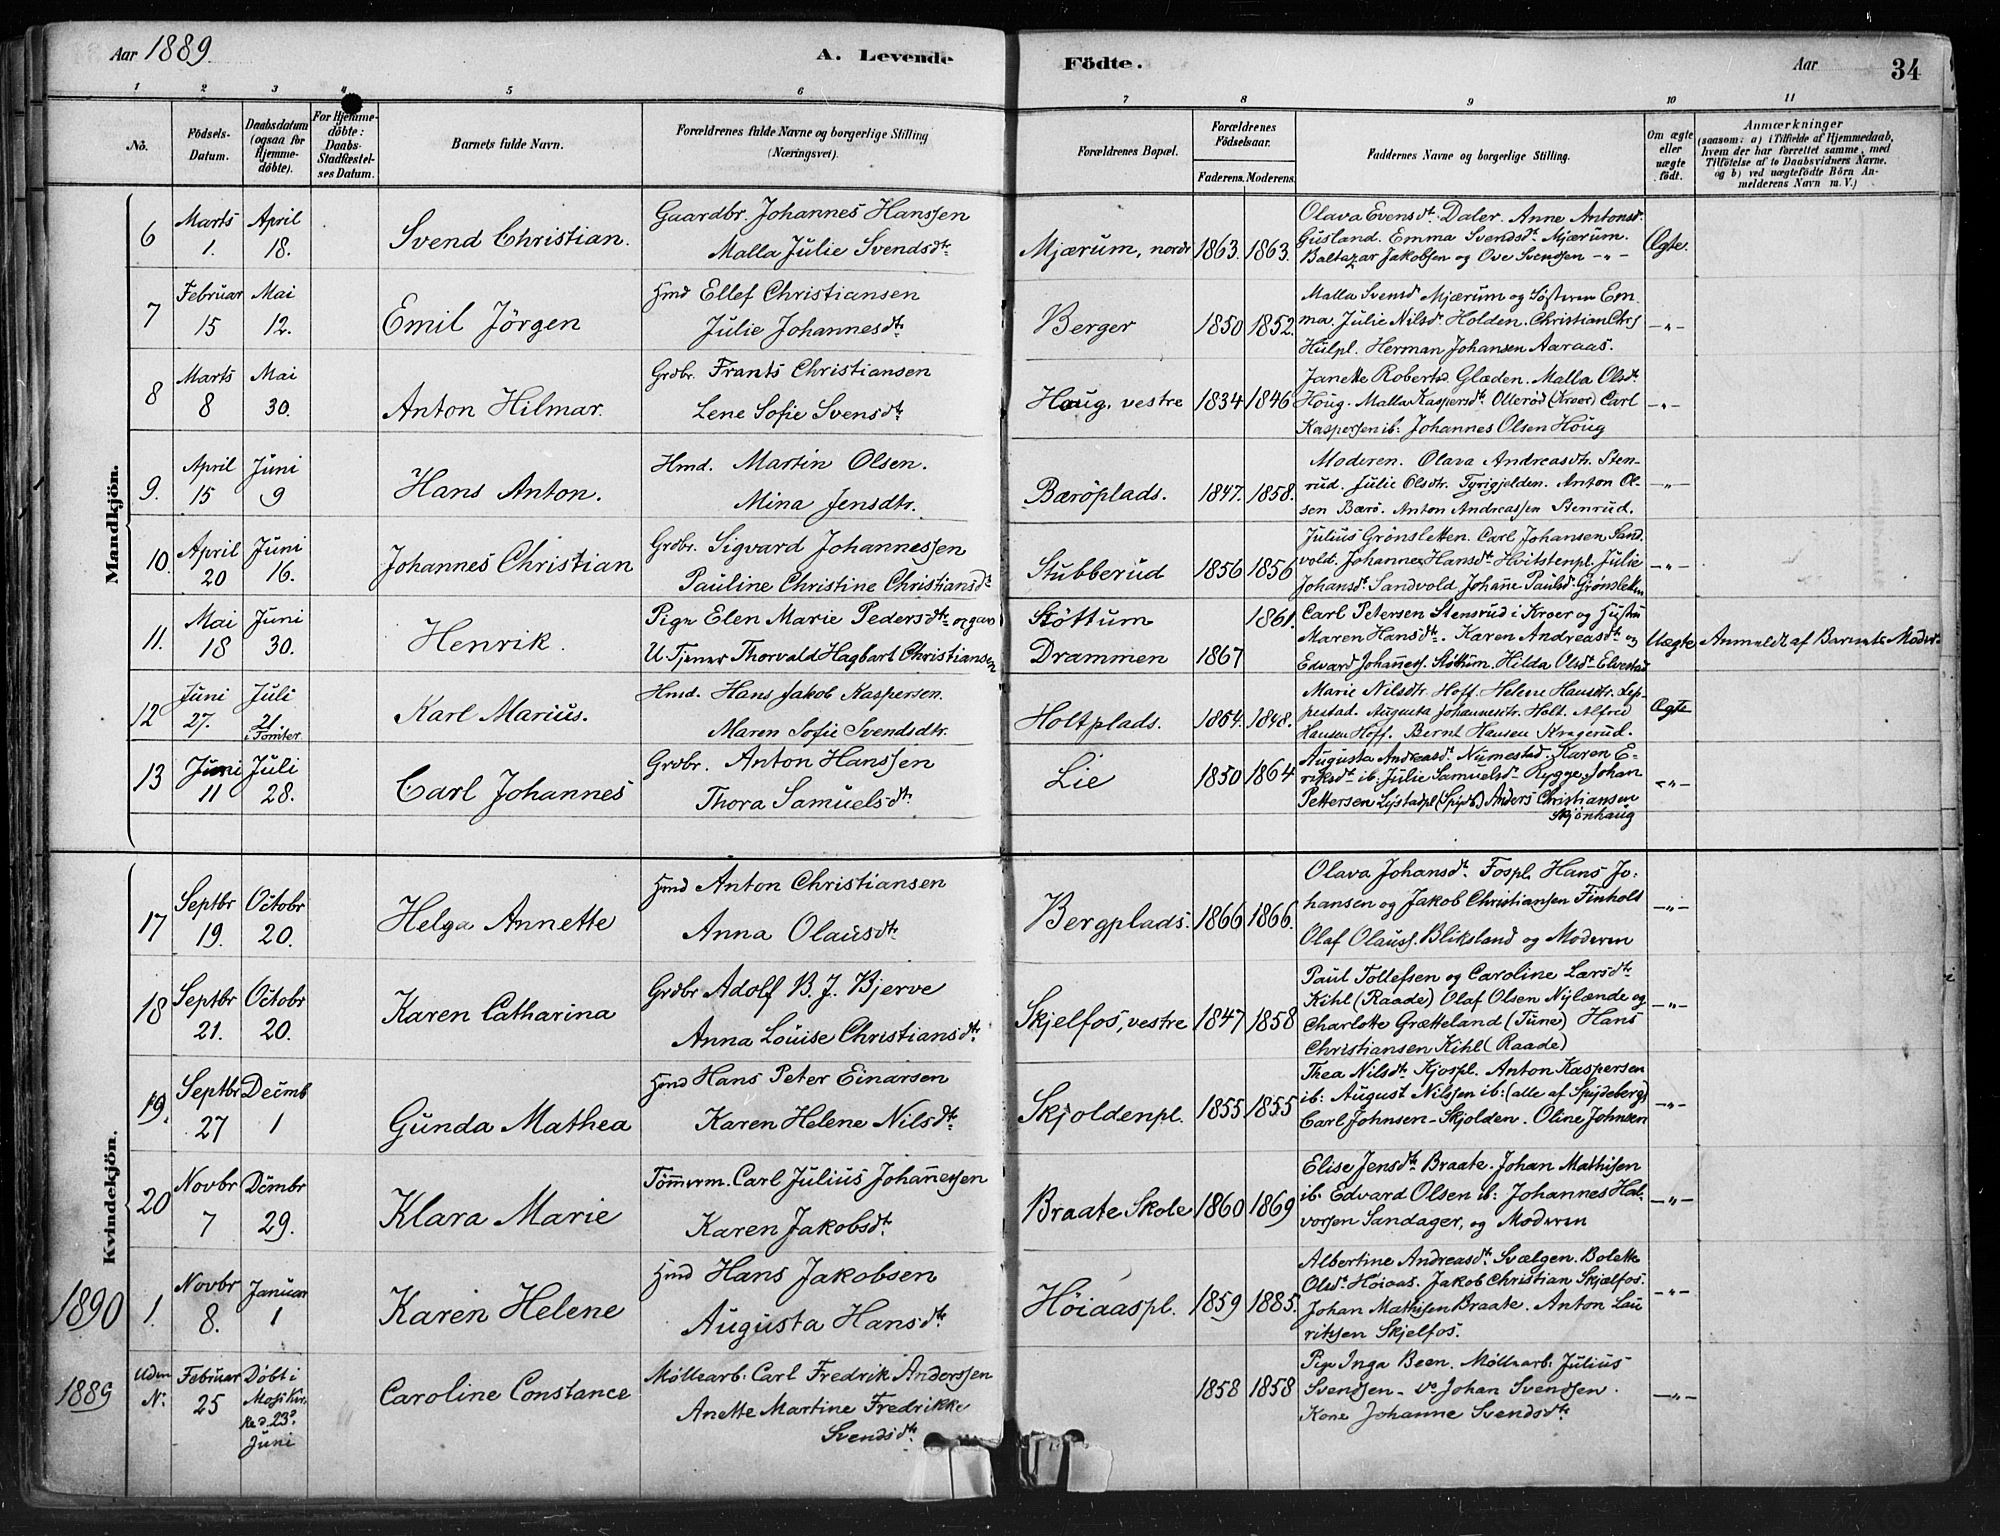 Aar 1889.
A. Levende Födte.
Aar
34
1 2 3 4 5 6 7 8 9 10 11
Nô.
Födsels-Datum.
Daabsdatum (ogsaa for Hjemme-döbte).
For Hjemme-döbte: Daabs-Stadfæstel-ses Datum.
Barnets fulde Navn.
Forældrenes fulde Navne og borgerlige Stilling (Næringsvei).
Forældrenes Bopæl.
Forældrenes Födselsaar.
Faderens. Moderens.
Faddernes Navne og borgerlige Stilling.
Om ægte eller uægte födt.
Anmærkninger
(saasom: a) i Tilfælde af Hjemmedaab, hvem der har forrettet samme, med Tilföielse af to Daabsvidners Navne. og b) ved uægtefödte Börn An-melderens Navn m. V.)
Mandkjön.
6 Marts 1. April 18. Svend Christian. Gaardbr. Johannes Hanssen
Malla Julie Svendsdtr
Mjærum, nordr 1863. 1863.
Olava Evensdtr Daler. Anne Antonsd.
Gusland. Emma Svendsdtr Mjærum.
Baltazar Jakobsen og Ove Svendsen -"-
Ægte.
7 Februar 15 Mai 12. Emil Jörgen Hmd Ellef Christiansen
Julie Johannesdtr
Berger 1850 1852.
Malla Svensd Mjærum og Søsteren Em-
ma. Julie Nilsd. Holden. Christian Chrs
Hulpl. Herman Johansen Aaraas.
-"-
8 Marts 8 Mai 30. Anton Hilmar. Grdbr. Frants Christiansen
Lene Sofie Svensdtr
Haug, vestre 1834 1846
Janette Robertsd. Glæden. Malla Olsdtr
Houg. Malla Kaspersdtr Ollerød (Kroer) Carl
Kaspersen ib: Johannes Olsen Houg
-"-
9. April 15 Juni 9 Hans Anton. Hmd. Martin Olsen.
Mina Jensdtr.
Bæröplads. 1847. 1858.
Moderen. Olava Andreasdtr. Sten-
rud. Julie Olsdtr. Tyrigjelden. Anton Ol-
sen Bærø. Anton Andreassen Stenrud.
-"-
10. April 20 Juni 16. Johannes Christian Grdbr. Sigvard Johannessen
Pauline Christine Christiansdtr
Stubberud 1856 1856
Julius Grønsletten. Carl Johansen Sand-
vold. Johanne Hansdtr Hvitstenpl. Julie
Johansdtr Sandvold Johanne Paulsd. Grønsletten
-"-
11. Mai 18 Juni 30. Henrik. Pige Elen Marie Pedersdtr og
U. Tjener Thorvald Hagbart Christiansen
Støttum
Drammen 1867 1861.
Carl Petersen Stensrud i Kroer og Hustru
Maren Hansdtr. Karen Andreasdtr og
Edvard Johanness. Støttum. Hilda Olsdtr Elvestad
Uægte Anmeldt af Barnets Moder
12 Juni 27. Juli 21 i Tomter Karl Marius. Hmd. Hans Jakob Kaspersen.
Maren Sofie Svendsdtr.
Holtplads. 1854. 1848.
Marie Nilsdtr. Hoff. Helene Hansdtr. Lep-
pestad. Augusta Johannesdtr. Holt. Alfred
Hansen Hoff. Bernt Hansen Kragerud.
Ægte
13 Juni 11 Juli 28. Carl Johannes Grdbr. Anton Hanssen
Thora Samuelsdtr
Lie 1850 1864
Augusta Andreasdtr Numestad. Karen E-
riksdtr ib. Julie Samuelsdtr Rygge. Johan
Pettersen Lystadpl (Spydb.) Anders Christiansen
Skjønhaug
-"-
Kvindekjön.
17 Septbr 19. Octobr 20. Helga Annette Hmd Anton Christiansen
Anna Olausdtr
Bergplads. 1866 1866.
Olava Johansdtr Fospl. Hans Jo-
hansen og Jakob Christiansen Finholt
Olaf Olauss. Bliksland og Moderen
-"-
18 Septbr 21. Octobr 20. Karen Catharina Grdbr Adolf B. J. Bjerve
Anna Louise Christiansdtr
Skjelfos, vestre 1847 1858
Paul Tollefsen og Caroline Larsdtr
Kihl (Raade) Olaf Olsen Nylænde og
Charlotte Grætteland (Tune) Hans
Christiansen Kihl (Raade)
-"-
19. Septbr 27 Decmb 1 Gunda Mathea Hmd Hans Peter Einarsen
Karen Helene Nilsdtr
Skjoldenpl. 1855 1855
Thea Nilsdtr Kjospl. Anton Kaspersen
ib: August Nilssen ib: (alle af Spydeberg)
Carl Johnsen - Skjolden. Oline Johnsen
-"-
20 Novbr 7 Decmbr 29. Klara Marie Tömmerm. Carl Julius Johannessen
Karen Jakobsdtr
Braate Skole 1860 1869
Elise Jensdtr Braate. Johan Mathisen
ib: Edvard Olsen ib: Johannes Hal-
vorsen Sandager, og Moderen
-"-
1890 1. Novbr 8. Januar 1 Karen Helene Hmd Hans Jakobsen
Augusta Hansdtr
Høiaaspl. 1859 1885.
Albertine Andreasdtr Svælgen. Bolette
Olsdtr Høiaas. Jakob Christian Skjælfos.
Johan Mathisen Braate. Anton Lau
ritzsen Skjelfos.
-"-
1889 Uden No. Februar 25 Døbt i Moss Kir-ke d. 23de Juni Caroline Constance Møllearb. Carl Fredrik Anderssen
Anette Martine Fredrikke
Svendsdtr
1858 1858
Pige Inga Been. Møllearb. Julius
Svendsen - Johan Svendsen.
Kone Johanne Svendsdtr
-"-